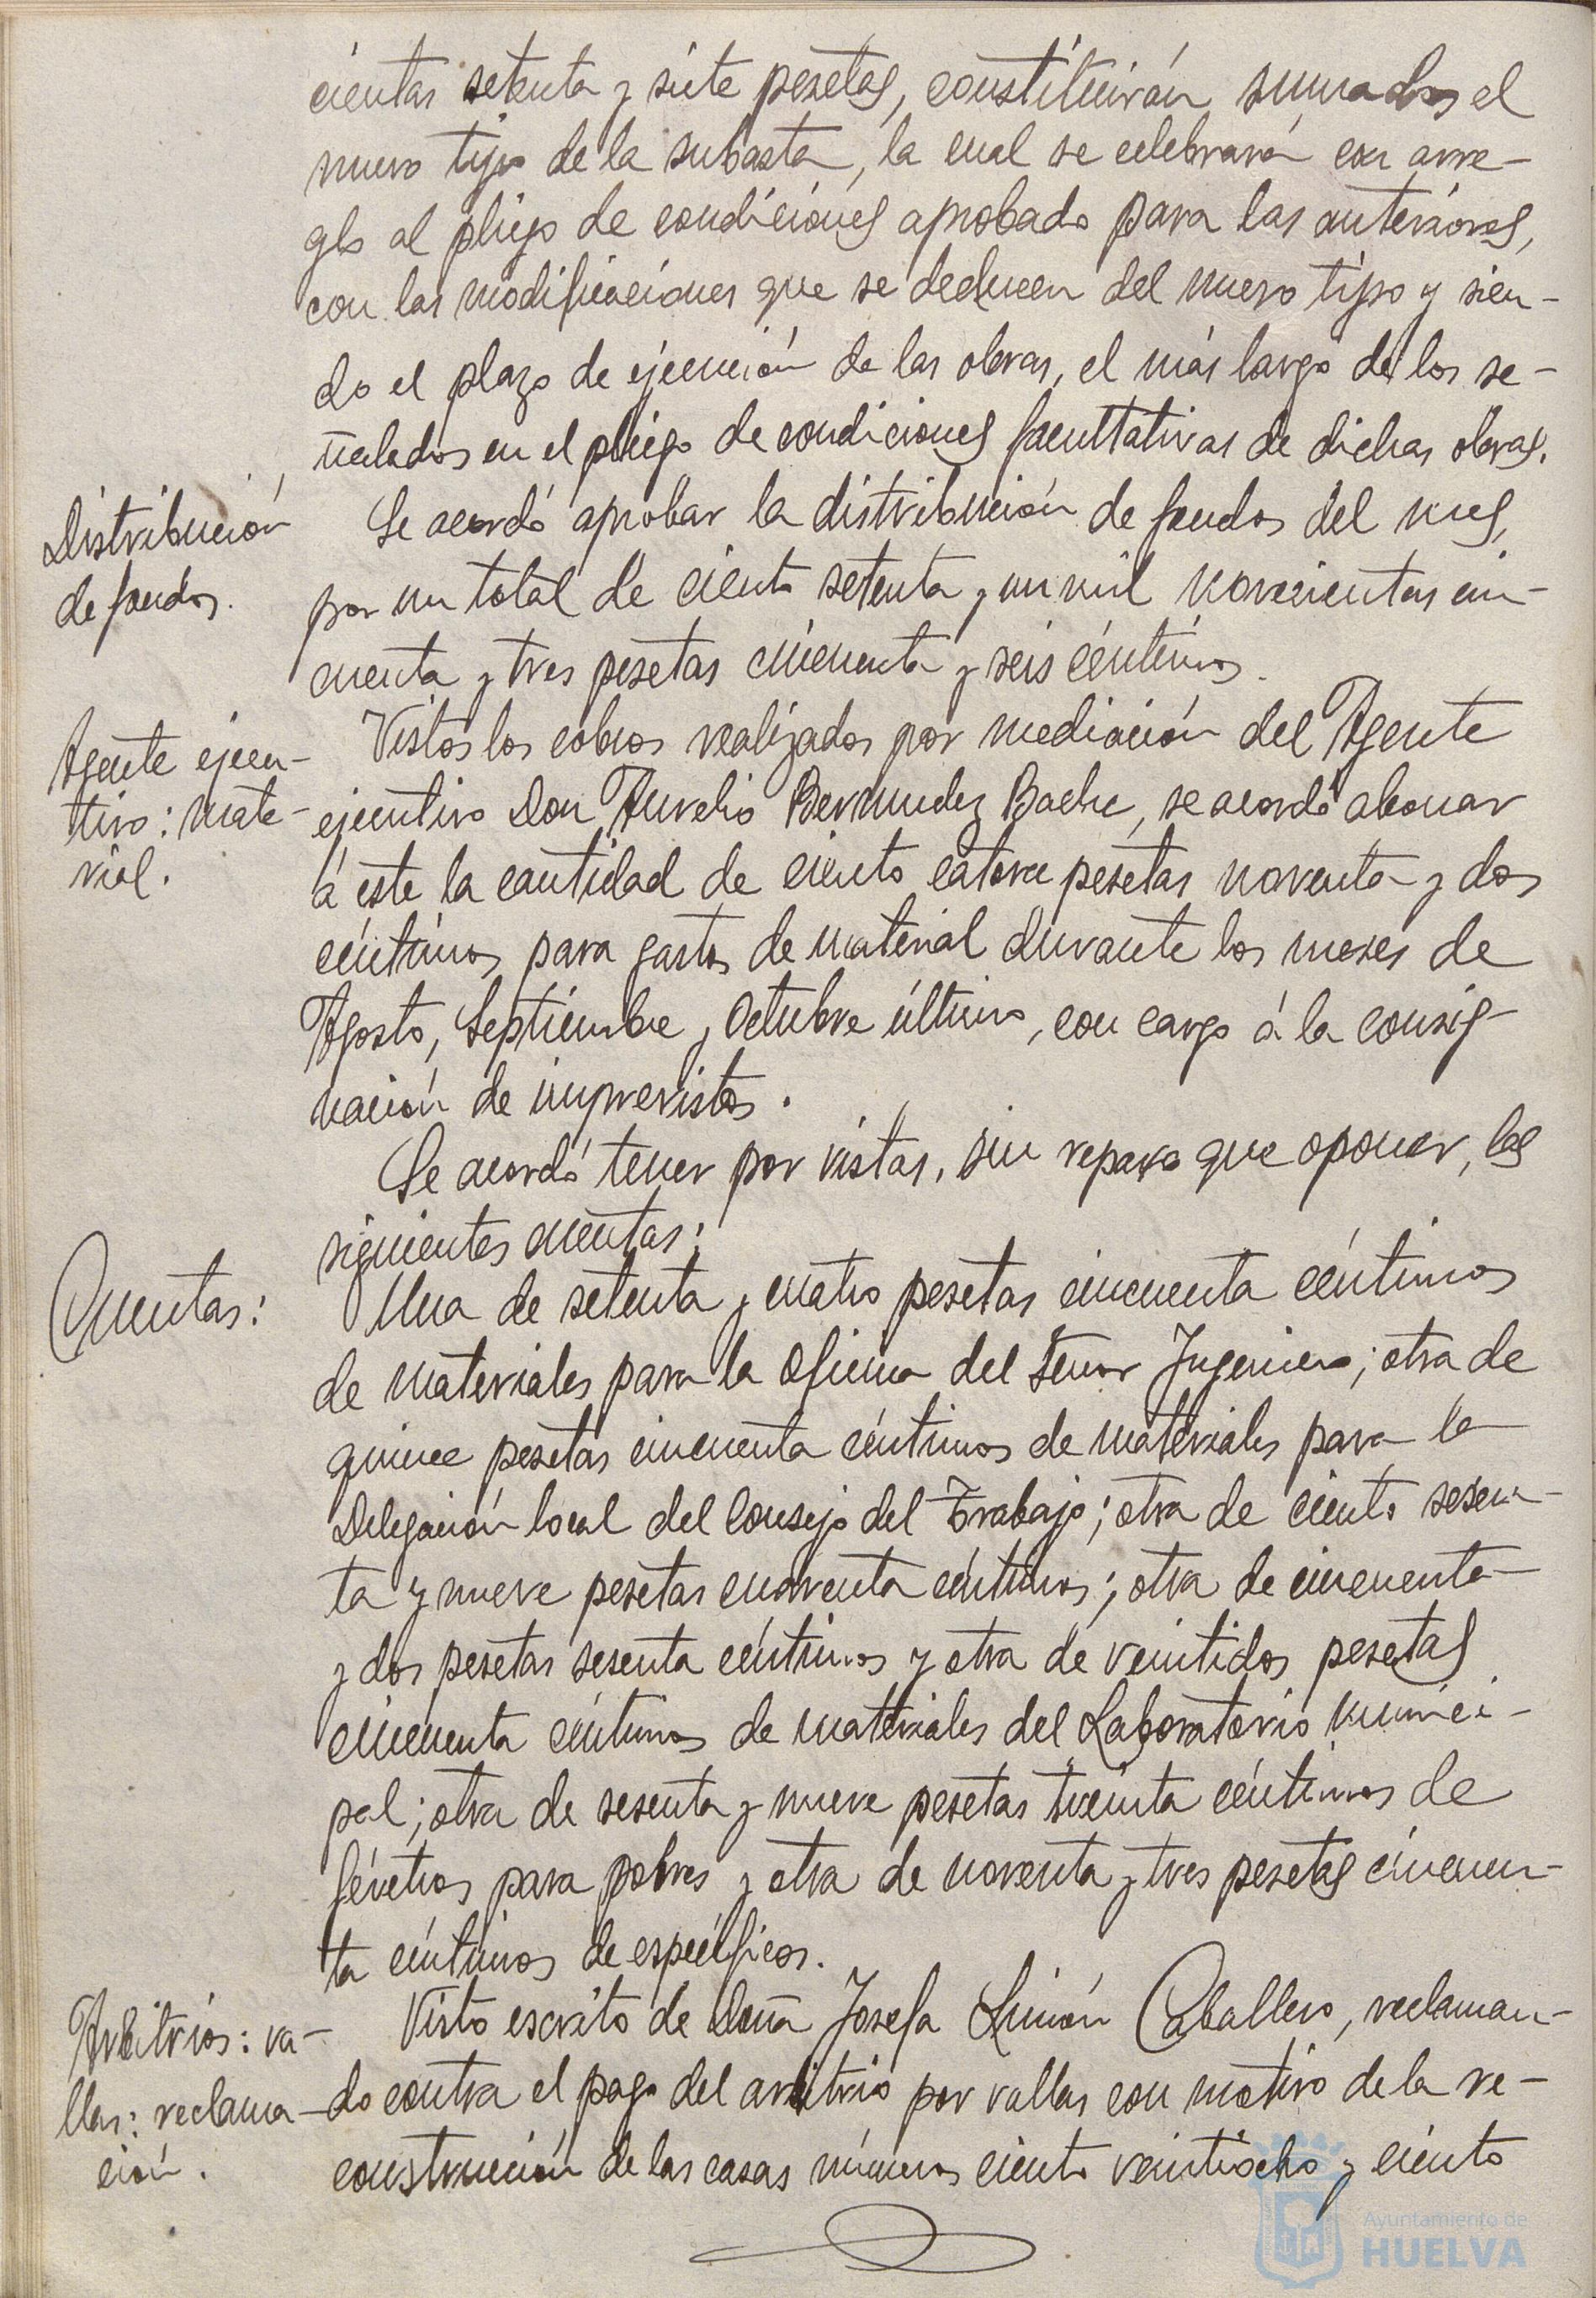 cientas setenta y siete pesetas, constituirán sumados el
nuevo tipo de la subasta, la cual se celebrará con arre-
glo al pliego de condiciones aprobado para las anteriores,
con las modificaciones que se deducen del nuevo tipo y sien-
do el plazo de ejecución de las obras, el más largo de los se-
ñalados en el pliego de condiciones facultativas de dichas obras.
Distribución
de fondos.
Se acordó aprobar la distribución de fondos del mes,
por un total de ciento setenta y un mil novecientas cin-
cuenta y tres pesetas cincuenta y seis céntimos.
Agente ejecu-
tivo: mate-
rial.
Vistos los cobros realizados por mediación del Agente
ejecutivo Don Aurelio Bermudez Bache, se acordó abonar
á este la cantidad de ciento catorce pesetas noventa y dos
céntimos para gastos de material durante los meses de
Agosto, Septiembre y Octubre último, con cargo á la consig-
nación de imprevistos.
Se acordó tener por vistas, sin reparo que oponer, las
siguientes cuentas:
Cuentas:
Una de setenta y cuatro pesetas cincuenta céntimos
de materiales para la oficina del Señor Ingeniero; otra de
quince pesetas cincuenta céntimos de materiales para la
Delegación local del Consejo del Trabajo; otra de ciento sesen-
ta y nueve pesetas cuarenta céntimos; otra de cincuenta
y dos pesetas sesenta céntimos y otra de veintidos pesetas
cincuenta céntimos de materiales del Laboratorio munici-
pal; otra de sesenta y nueve pesetas treinta céntimos de
féretros para pobres y otra de noventa y tres pesetas cincuen-
ta céntimos de específicos.
Arbitrios: va-
llas: reclama-
ción.
Visto escrito de Doña Josefa Limón Caballero, reclaman-
do contra el pago del arbitrio por vallas con motivo de la re-
construcción de las casas números ciento veintiocho y ciento
Ayuntamiento de
HUELVA